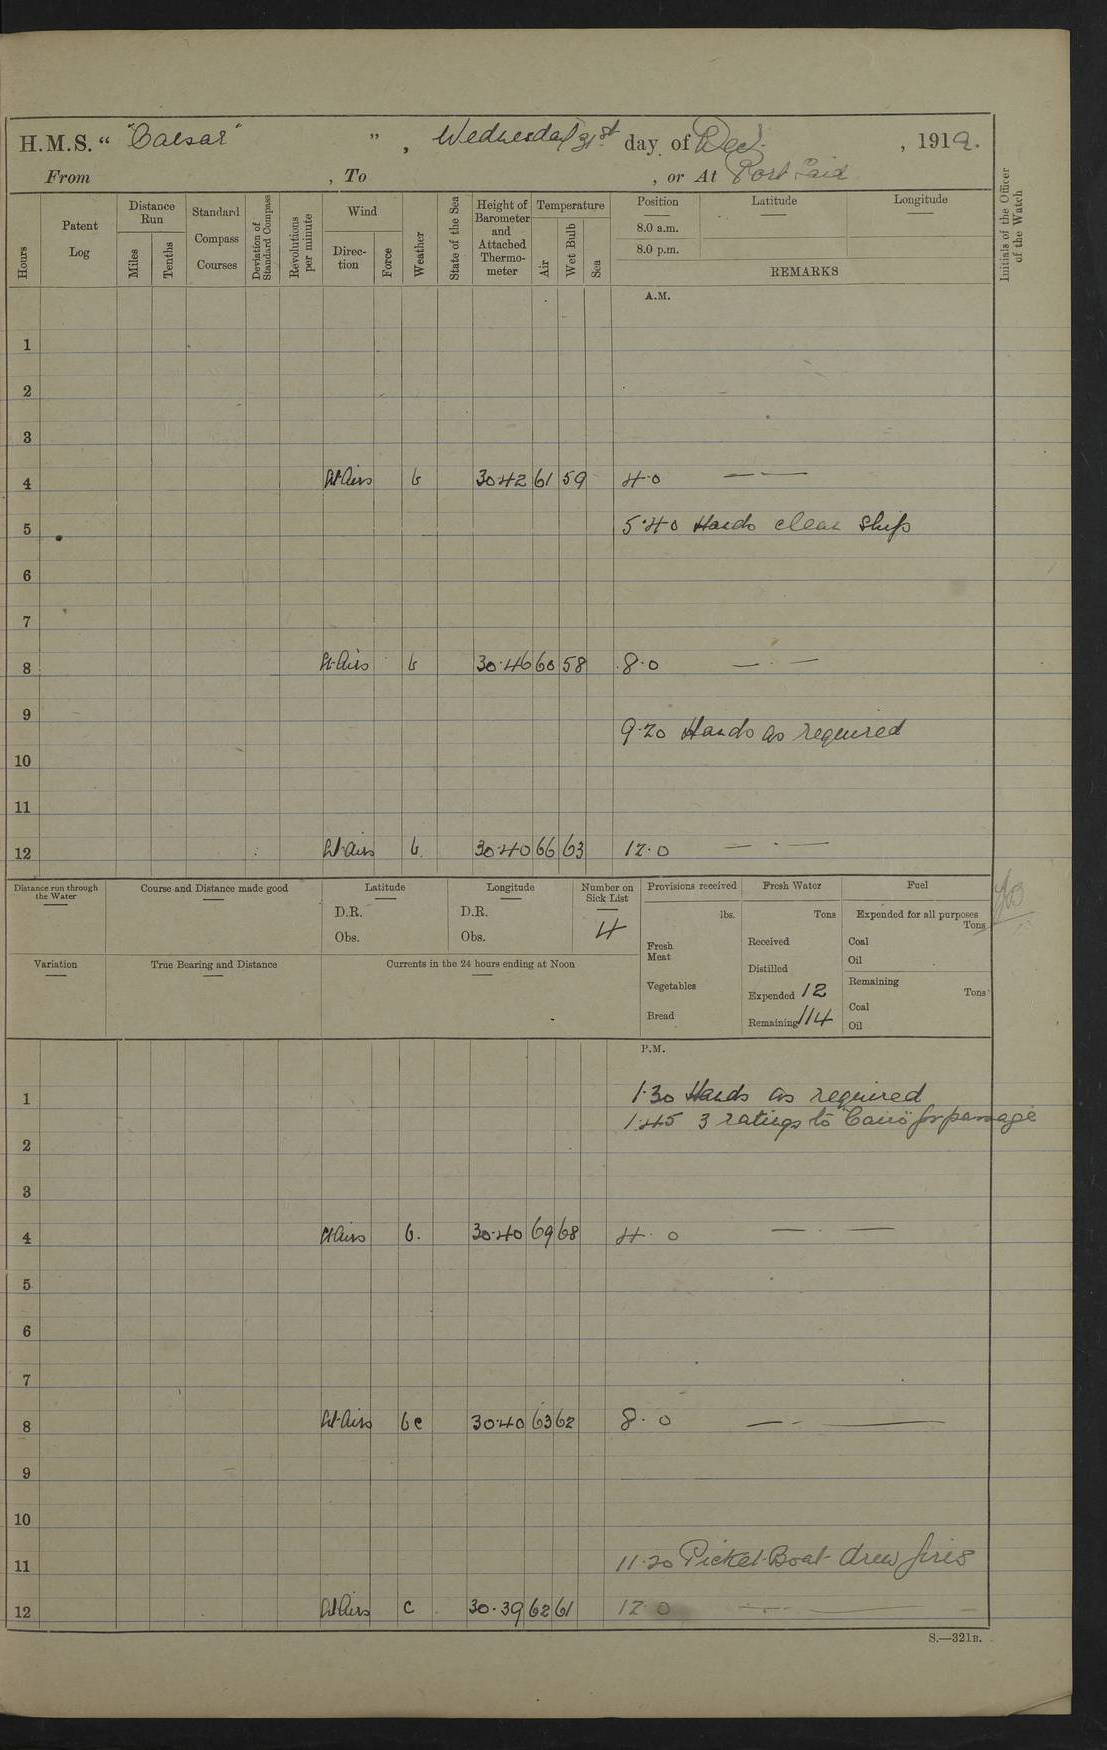 H.M.S. " "Caesar" ", Wednesday 31st day of Decr. , 1919.
From , To , or At Port Said
Hours
Patent Log
Distance Run
Miles
Tenths
Standard Compass Courses
Deviation of Standard Compass
Revolutions per minute
Wind
Direc-tion
Force
Weather
State of the Sea
Height of Barometer and Attached Thermo-meter
Temperature
Air
Wet Bulb
Sea
Position
8.0 a.m.
8.0 p.m.
Latitude
Longitude
REMARKS
Initials of the Officer of the Watch
A.M.
1
2
3
4 Lt Airs b 30.42 61 59 4.0 — —
5 5.40 Hands clean Ship
6
7
8 Lt. Airs b 30.46 60 58 8.0 — —
9
9.20 Hands as required
10
11
12 Lt. airs b. 30.40 66 63 12.0 — —
Distance run through the Water
Course and Distance made good
Latitude
D.R.
Obs.
Longitude
D.R.
Obs.
Number on Sick List
4
Provisions received
lbs.
Fresh Meat
Vegetables
Bread
Fresh Water
Tons
Received
Distilled
Expended 12
Remaining 114
Fuel
Expended for all purposes
Tons
Coal
Oil
Remaining
Tons
Coal
Oil
Variation
True Bearing and Distance
Currents in the 24 hours ending at Noon
P.M.
1 1.30 Hands as required
1.45 3 ratings to "Cairo" for passage
2
3
4 Lt Airs b. 30.40 69 68 4.0 — —
5
6
7
8 Lt. Airs bc 30.40 63 62 8.0 — —
9
10
11 11.20 Picket-Boat drew fires
12 Lt Airs c 30.39 62 61 12.0 — —
S.—321B.